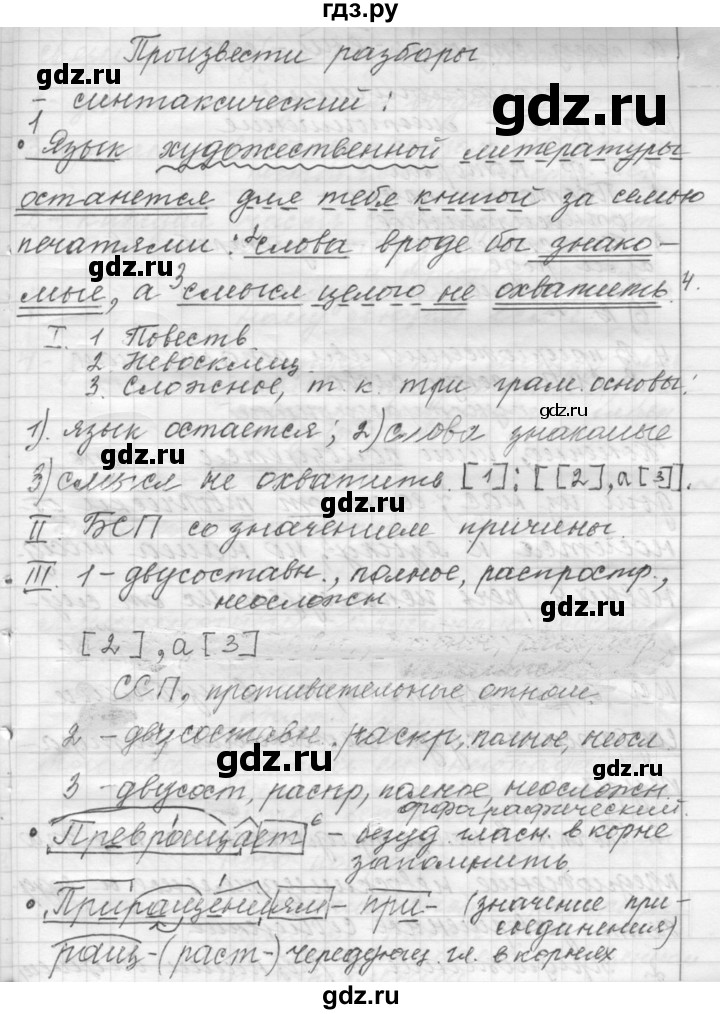 гдз.ру
Произвести разборы
gdz.ru gdz.ru
- синтаксический :
1
• Язык художественной литературы
останется для тебя книгой за семью
gdz.ru
печатями : 2 слова вроде бы знако-
gdz.ru
мые, а 3 смысл целого не охватить 4.
I. 1 Повеств.
2 Невосклиц.
3. Сложное, т. к. три грам. основы:
gdz.ru
1). язык остается; 2) слова знакомые
gdz.ru
3) смысл не охватить. [1] : [ [2], а [3] ].
gdz.ru
II БСП со значением причины.
• III. 1 - двусоставн., полное, распростр.,
gdz.ru
неосложн.
gdz.ru
[2], а [3]
ССП, противительные отнош.
2 - двусоставн. раскр, полное, неосл
gdz.ru
3 - двусост, распр, полное, неосложн
gdz.ru
орфографический.
• Превращает 6 - безуд. гласн. в корне
gdz.ru
запомнить.
• Приращениям - при- (значение при-
соединения)
ращ - (раст-) чередующ. гл. в корнях
gdz.ru
gdz.ru
гдз.ру